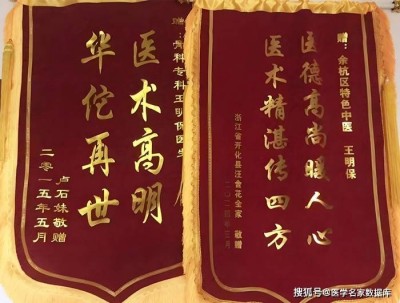 赠：骨科专科王明保医生
医术高明
华佗再世
卢石妹敬赠
二〇一五年五月
赠：余杭区特色中医 王明保
医德高尚暖人心
医术精湛传四方
浙江省开化县汪食花全家 敬赠
搜狐号@医学名家数据库